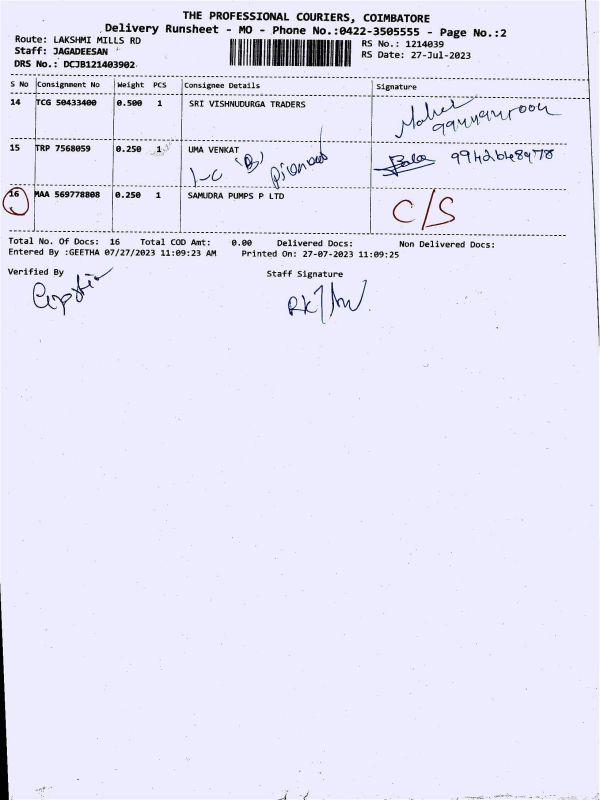 THE PROFESSIONAL COURIERS, COIMBATORE
Delivery Runsheet - MO - Phone No.:0422-3505555 - Page No.:2
Route: LAKSHMI MILLS RD RS No.: 1214039
Staff: JAGADEESAN RS Date: 27-Jul-2023
DRS No.: DCJB121403902
S No Consignment No Weight PCS Consignee Details Signature
14 TCG 50433400 0.500 1 SRI VISHNUDURGA TRADERS
15 TRP 7568059 0.250 1 UMA VENKAT
Bala 9942648978
16 MAA 569778808 0.250 1 SAMUDRA PUMPS P LTD
C/S
Total No. Of Docs: 16 Total COD Amt: 0.00 Delivered Docs: Non Delivered Docs:
Entered By :GEETHA 07/27/2023 11:09:23 AM Printed On: 27-07-2023 11:09:25
Verified By Staff Signature